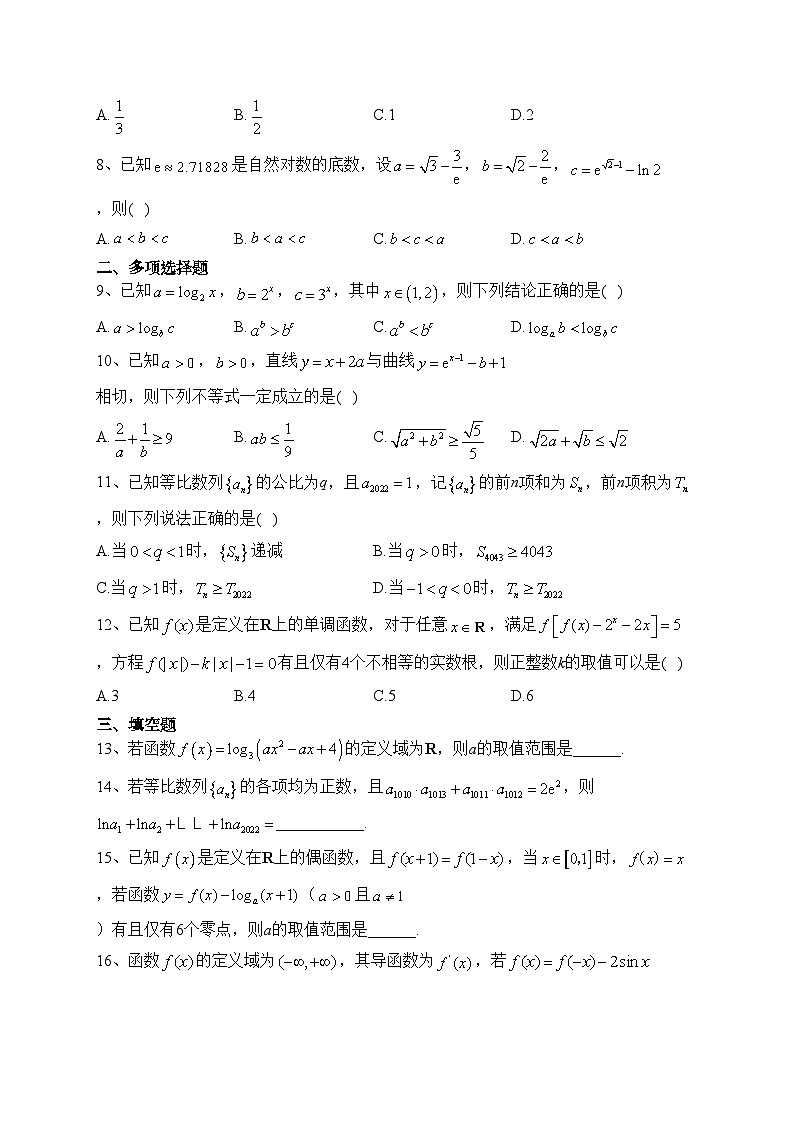 A. 1/3 B. 1/2 C.1 D.2
8、已知 e ≈ 2.71828 是自然对数的底数，设 a = √3 − 3/e，b = √2 − 2/e，c = e^(√2−1) − ln 2
，则( )
A. a < b < c B. b < a < c C. b < c < a D. c < a < b
二、多项选择题
9、已知 a = log₂ x，b = 2^x，c = 3^x，其中 x ∈ (1,2)，则下列结论正确的是( )
A. a > log_b c B. a^b > b^c C. a^b < b^c D. log_a b < log_b c
10、已知 a > 0，b > 0，直线 y = x + 2a 与曲线 y = e^(x−1) − b + 1
相切，则下列不等式一定成立的是( )
A. 2/a + 1/b ≥ 9 B. ab ≤ 1/9 C. √(a² + b²) ≥ √5/5 D. √(2a) + √b ≤ √2
11、已知等比数列 {a_n} 的公比为q，且 a_2022 = 1，记 {a_n} 的前n项和为 S_n，前n项积为 T_n
，则下列说法正确的是( )
A.当 0 < q < 1 时，{S_n} 递减 B.当 q > 0 时，S_4043 ≥ 4043
C.当 q > 1 时，T_n ≥ T_2022 D.当 −1 < q < 0 时，T_n ≥ T_2022
12、已知 f(x) 是定义在R上的单调函数，对于任意 x ∈ R，满足 f[f(x) − 2^x − 2x] = 5
，方程 f(|x|) − k|x| − 1 = 0 有且仅有4个不相等的实数根，则正整数k的取值可以是( )
A.3 B.4 C.5 D.6
三、填空题
13、若函数 f(x) = log₃(ax² − ax + 4) 的定义域为R，则a的取值范围是______.
14、若等比数列 {a_n} 的各项均为正数，且 a_1010 · a_1013 + a_1011 · a_1012 = 2e²，则
lna₁ + lna₂ + L L + lna_2022 = ___________.
15、已知 f(x) 是定义在R上的偶函数，且 f(x+1) = f(1−x)，当 x ∈ [0,1] 时，f(x) = x
，若函数 y = f(x) − log_a(x+1)（a > 0 且 a ≠ 1
）有且仅有6个零点，则a的取值范围是______.
16、函数 f(x) 的定义域为 (−∞,+∞)，其导函数为 f'(x)，若 f(x) = f(−x) − 2sin x